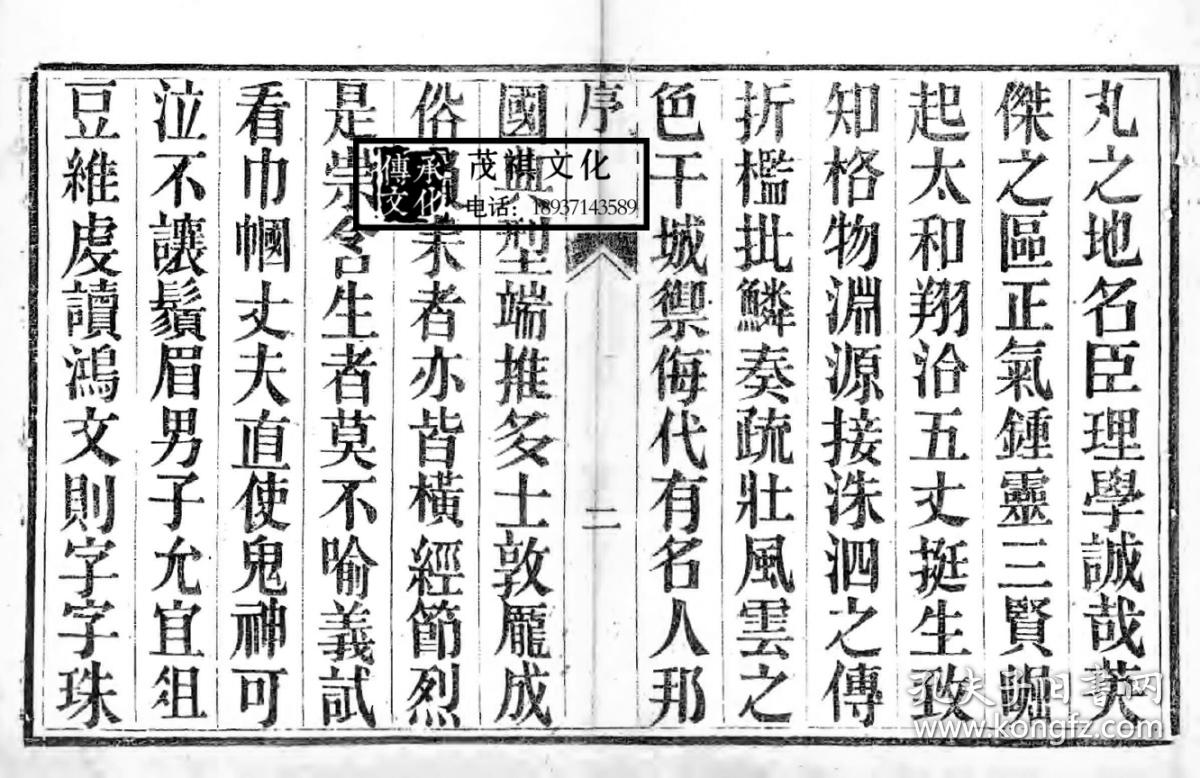 丸之地名臣理學誠哉英
傑之區正氣鍾靈三賢崛
起太和翔洽五丈挺生致
知格物淵源接洙泗之傳
折檻批鱗奏疏壯風雲之
色干城禦侮代有名人邦
序 二
國型端推多士敦龐成
俗耒者亦皆橫經節烈
是崇令生者莫不喻義試
看巾幗丈夫直使鬼神可
泣不讓鬚眉男子允宜俎
豆維虔讀鴻文則字字珠
承化傳文
茂祺文化
电话：18937143589
孔夫子旧书网
www.kongfz.com